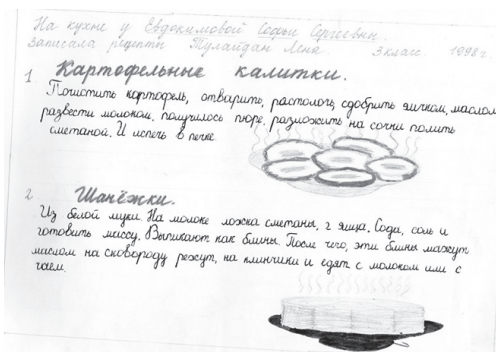 На кухне у Евдокимовой Софьи Сергеевны.
Записала рецепты Тулайдан Лена. 3 класс. 1998 г.
1 Картофельные калитки.
Почистить картофель, отварить, растолочь, сдобрить яичком, маслом
развести молоком, получилось пюре, разложить на сочни полить
сметаной. И испечь в печке.
2 Шанёжки.
Из белой муки. На молоке ложка сметаны, 2 яйца, Сода, соль и
готовить массу. Выпикают как блины. После чего, эти блины мажут
маслом на сковороду режут, на клинчики и едят с молоком или с
чаем.